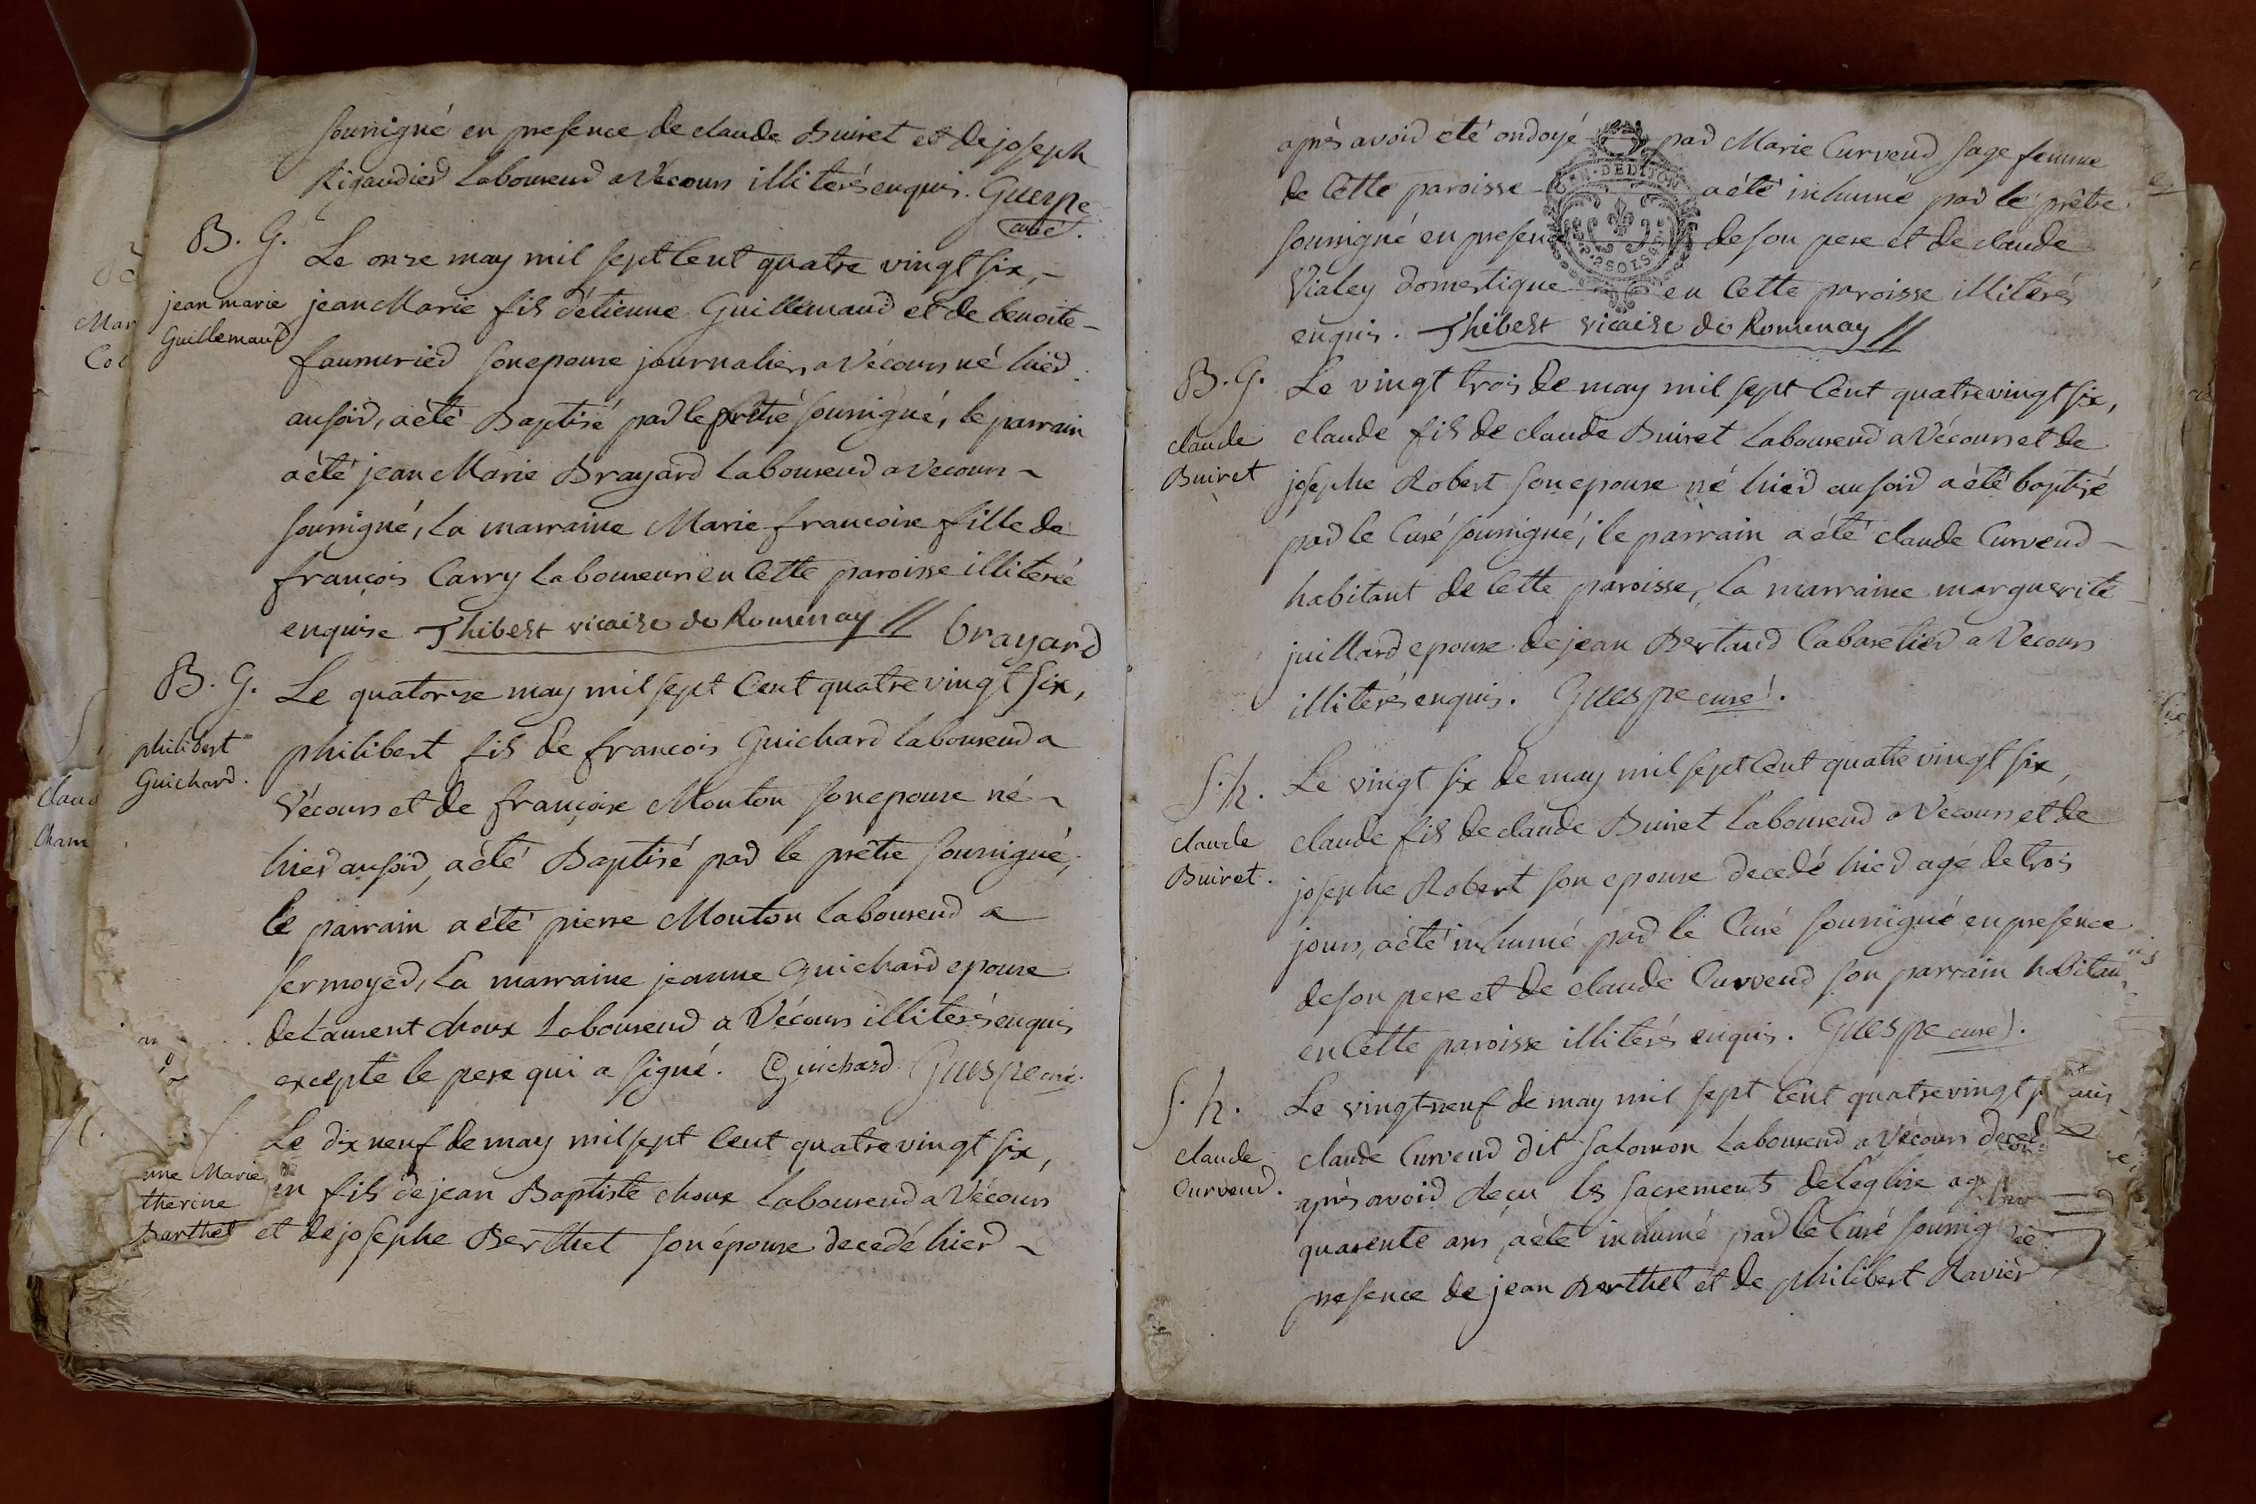 soussigné en presence de claude Buiret et de joseph
Rigaudier laboureur a Vecours illiterés enquis. Guespe
curé.
B. G.
jean marie
Guillemaud
Le onze may mil sept Cent quatre vingt six,
jean Marie fils d'étienne Guillemaud et de benoite
faussurier son epouse journaliers a Vécours né hier
au soir, a été Baptisé par le prêtre soussigné, le parrain
a été jean Marie Brayard laboureur a vecours
soussigné, la marraine Marie francoise fille de
françois Carry laboureur en Cette paroisse illiterée
enquise Thibert vicaire de Romenay // brayard
B. G.
philibert
Guichard.
Le quatorze may mil sept Cent quatre vingt six,
philibert fils de francois Guichard laboureur a
Vécours et de françoise Mouton son epouse né
hier au soir, a été Baptisé par le prêtre soussigné,
le parrain a été pierre Mouton laboureur a
sermoyer, la marraine jeanne Guichard epouse
de Laurent choux laboureur a Vécours illiterés enquis
excepté le pere qui a signé. Guichard Guespe curé.
Le dix neuf de may mil sept Cent quatre vingt six,
un fils de jean Baptiste choux laboureur a Vécours
et de josephe Berthet son épouse decedé hier
nne Marie
therine
Barthet
Mar
Col
claud
Cham
après avoir été ondoyé par Marie Curveur sage femme
de Cette paroisse a été inhumé par le prêtre
soussigné en presence de son pere et de claude
Vialey domestique en Cette paroisse illiterés
enquis. Thibert vicaire de Romenay //
GEN. DE DIJON
2 SOLS
B. G.
claude
Buiret
Le vingt trois de may mil sept Cent quatre vingt six,
claude fils de claude Buiret laboureur a Vécours et de
josephe Robert son epouse né hier au soir a été baptisé
par le Curé soussigné, le parrain a été claude Curveur
habitant de Cette paroisse, la marraine marguerite
juillard epouse de jean Bertaud Cabaretier a Vecours
illiterés enquis. Guespe curé.
S. h.
claude
Buiret.
Le vingt six de may mil sept Cent quatre vingt six,
claude fils de claude Buiret laboureur a Vécours et de
josephe Robert son epouse decedé hier agé de trois
jours, a été inhumé par le Curé soussigné en presence
de son pere et de claude Curveur son parrain habitan
en Cette paroisse illiterés enquis. Guespe curé.
S. h.
claude
Curveur.
Le vingt-neuf de may mil sept Cent quatre vingt s
claude Curveur dit salomon laboureur a Vécours deced
après avoir Recu les sacrements de l'eglise ag
quarente ans, a été inhumé par le Curé soussig
presence de jean Berthet et de philibert Ravier